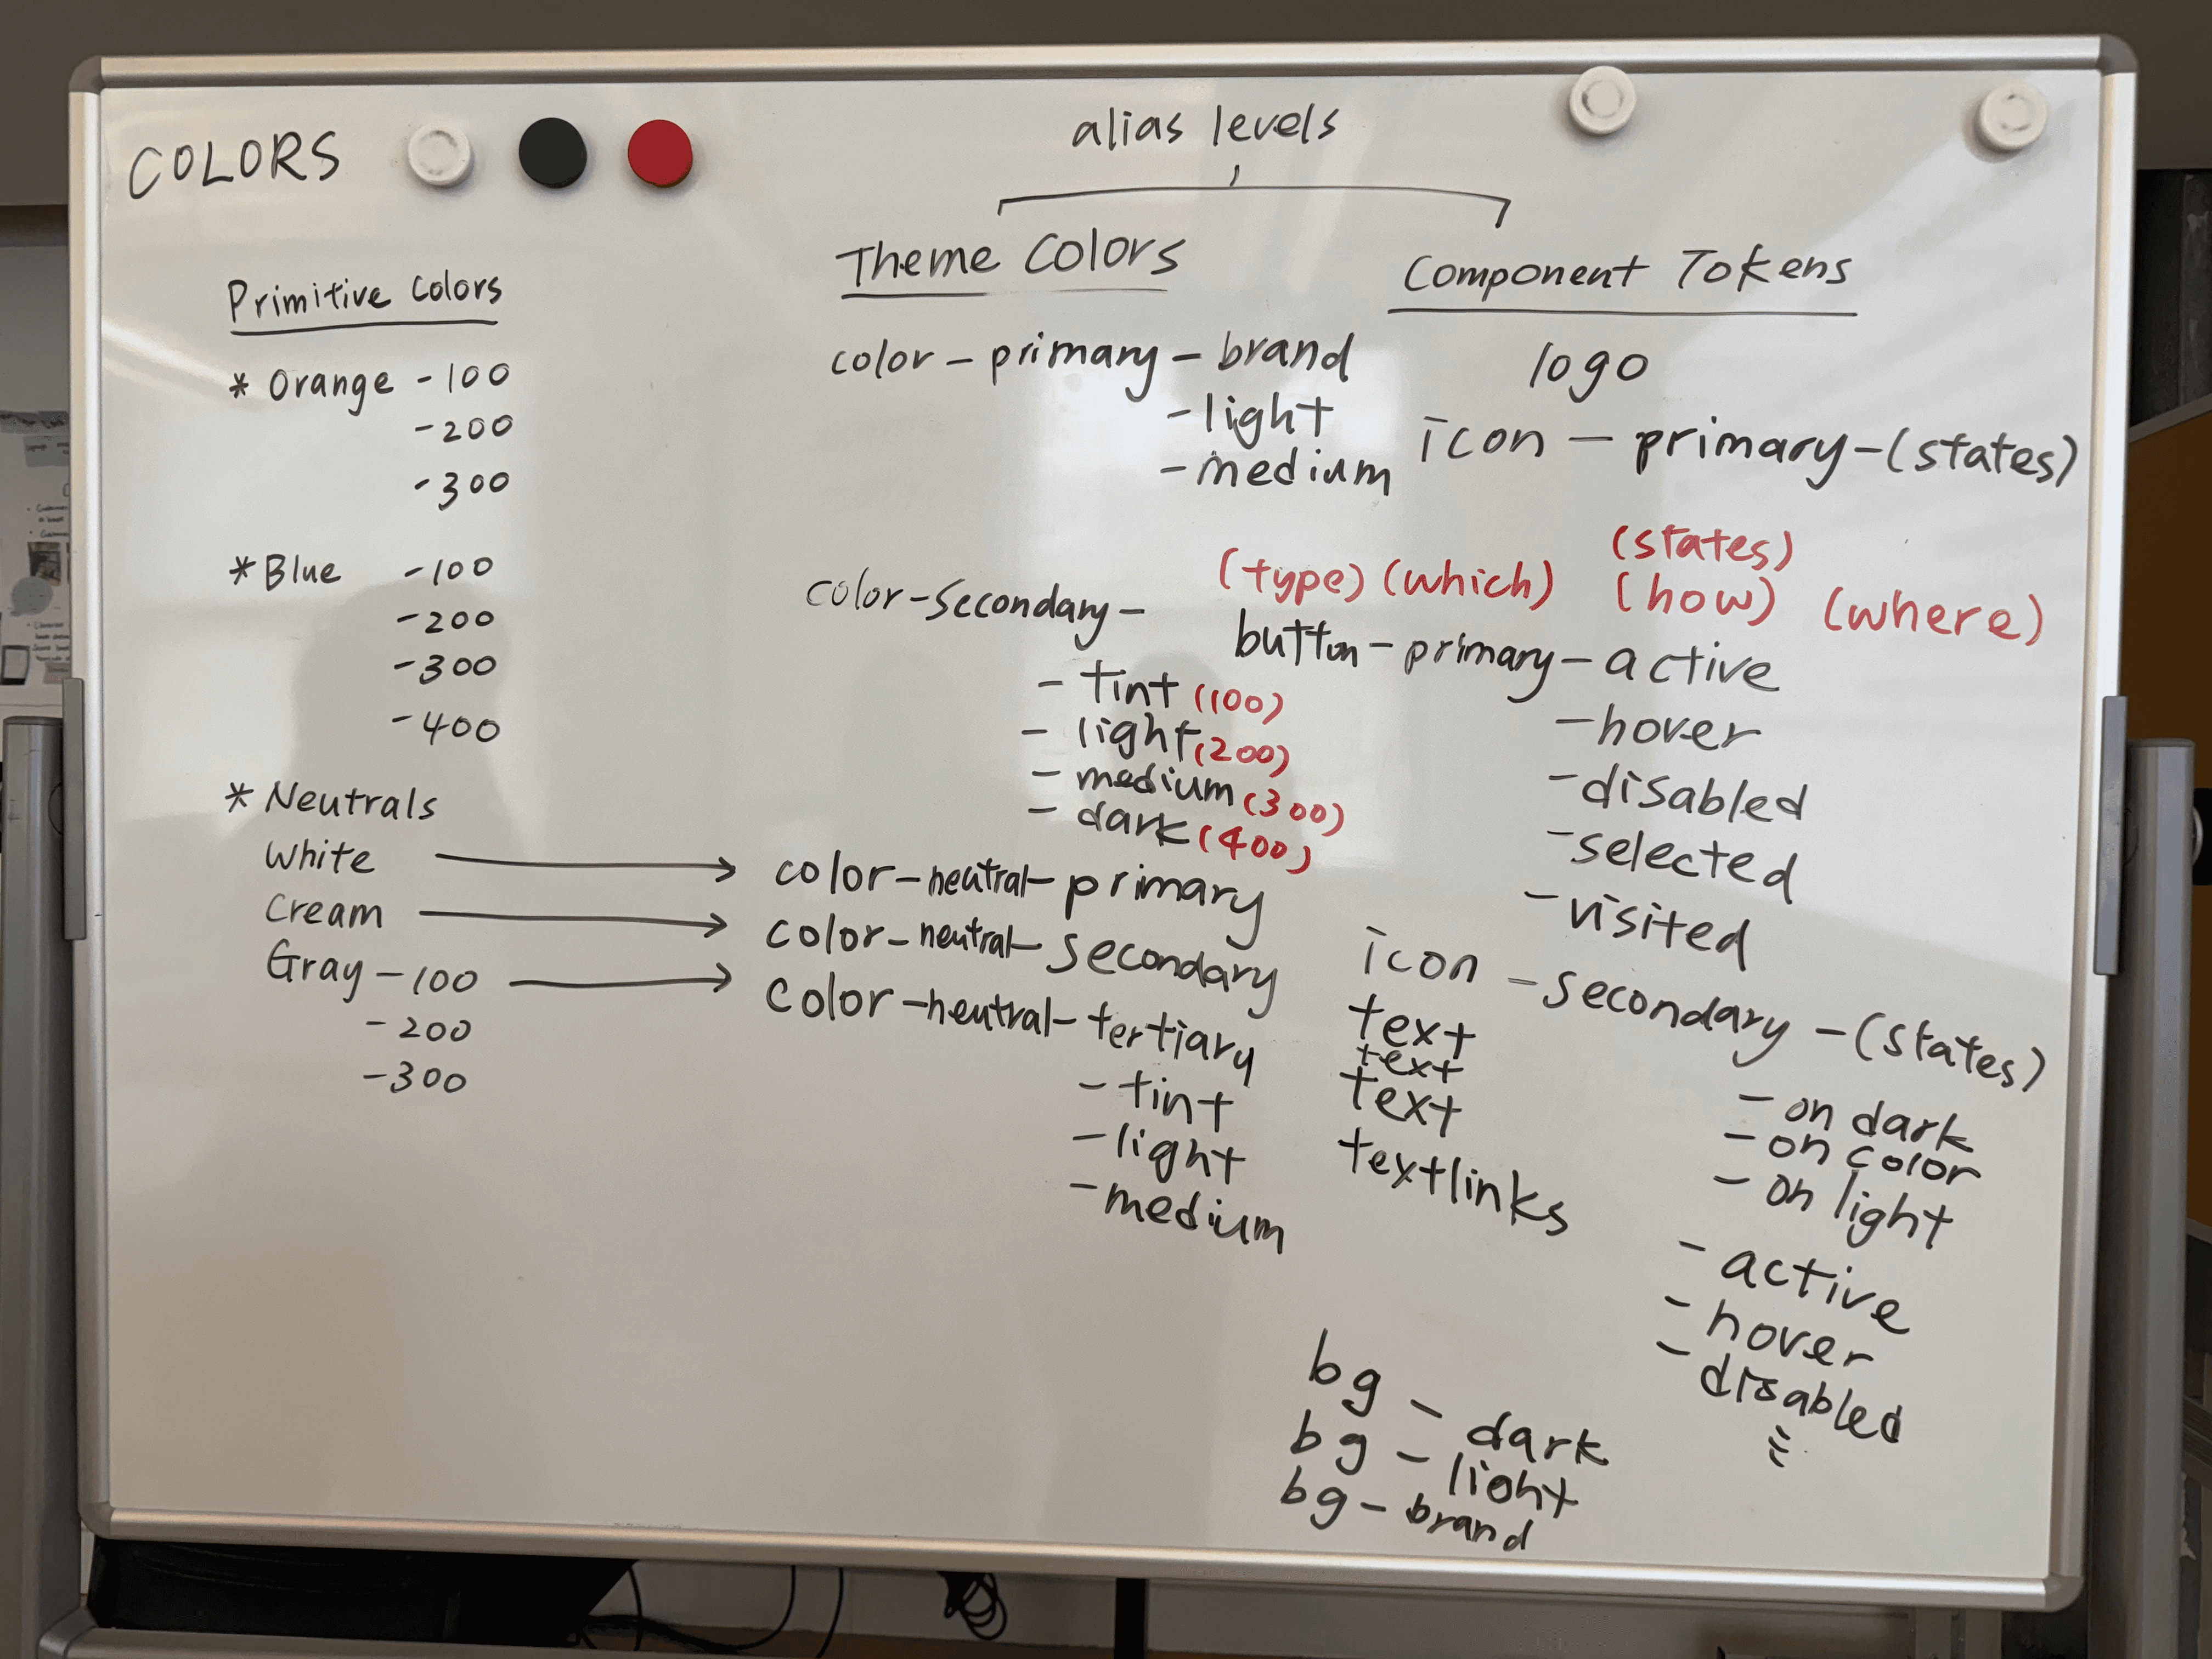 COLORS
alias levels
Primitive Colors
* Orange -100
-200
-300
* Blue -100
-200
-300
-400
* Neutrals
White
Cream
Gray -100
-200
-300
Theme Colors
color-primary-brand
-light
-medium
color-secondary-
- tint (100)
- light (200)
- medium (300)
- dark (400)
color-neutral-primary
color-neutral-secondary
color-neutral-tertiary
- tint
- light
- medium
Component Tokens
logo
icon - primary-(states)
(states)
(type) (which) (how) (where)
button-primary-active
-hover
-disabled
-selected
-visited
icon - secondary -(states)
text
text
text
textlinks
- on dark
- on color
- on light
- active
- hover
- disabled
bg - dark
bg - light
bg - brand